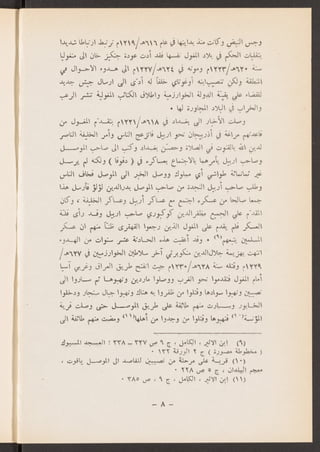 وجس النبض وكانت منذ بدايتها في عام ٦١٦هـ/١٢١٩م ترتبط ارتباطا شديدا
بتقلبات الحكم في بلاد المغول نفسها فقد أدت عودة جنكيز خان الى منغوليا
سنة ٦٢٠هـ/١٢٢٣م وموته في ٦٢٤هـ/١٢٢٧م الى هدوء الأحوال في
المنطقة ولكن تنصيب ابنه أوغوتاي خلفا له أدى الى ارسال جيش جديد
للقضاء على بقية الدولة الخوارزمية واطلاق الكتائب المغولية تنشر الرعب
والخراب في البلاد المجاورة لها ٠
وصلت الأخبار الى بغداد في ٦١٨هـ/١٢٢١م بتقدم المغول من
قاعدتهم مراغة في أذربيجان نحو اربيل فانزعج الناس وأمر الخليفة الناصر
لدين الله بالقنوت في الصلاة وحصن بغداد وكتب الى صاحب الموصل
وصاحب اربيل يأمرهما بالاجتماع بعساكره في ( دقوقا ) ولكنه لم يرسل
غير ثمانمائة طواشي أي مملوك ووصل الخبر الى الموصل فخاف الناس
وطلب صاحب أربيل النجدة من صاحب الموصل بدرالدين لؤلؤ فأرسل هذا
جمعا صالحا من عسكره اجتمع مع عساكر أربيل وعساكر الخليفة ، وكان
المقدم على الجميع مظفرالدين كوكبوري صاحب اربيل وقد رأى قلة
العسكر فلم يقدم على المغول الذين رجعوا القهقرى ظنا منهم ان عسكر
المسلمين يتبعهم(٩) ٠ وقد أعقبت هذه الحادثة عشر سنوات من الهدوء
انتهت بهزيمة جلال‌الدين منكوبرتي آخر سلاطين الخوارزميين في ٦٢٧هـ/
١٢٢٩م وقتله سنة ٦٢٨هـ/١٢٣٠م حيث انفتح طريق العراق وغربي آسيا
أمام المغول فتقدموا نحو الغرب ووصلوا ماردين ونهبوها ثم ساروا الى
نصيبين ونهبوا سوادها وقتلوا من ظفروا به هناك ونهبوا جبال سنجار ودخلوا
الخابور وسارت منهم طائفة على طريق الموصل حتى وصلت قرية
المؤنسة(١٠) فنهبوها وقتلوا من وجدوا من أهلها(١١) ومضت منهم طائفة الى
(٩) ابن الاثير ، الكامل ، ج ٩ ص ٣٣٧ – ٣٣٨ ؛ العسجد المسبوك
( مخطوطة مصورة ) ج ٢ الورقة ١٣٢ ٠
(١٠) قرية على مرحلة من نصيبين للقاصد الى الموصل ياقوت ،
معجم البلدان ، ج ٥ ص ٢٢٨ ٠
(١١) ابن الاثير ، الكامل ، ج ٩ ، ص ٣٨٥ ٠
– ٨ –